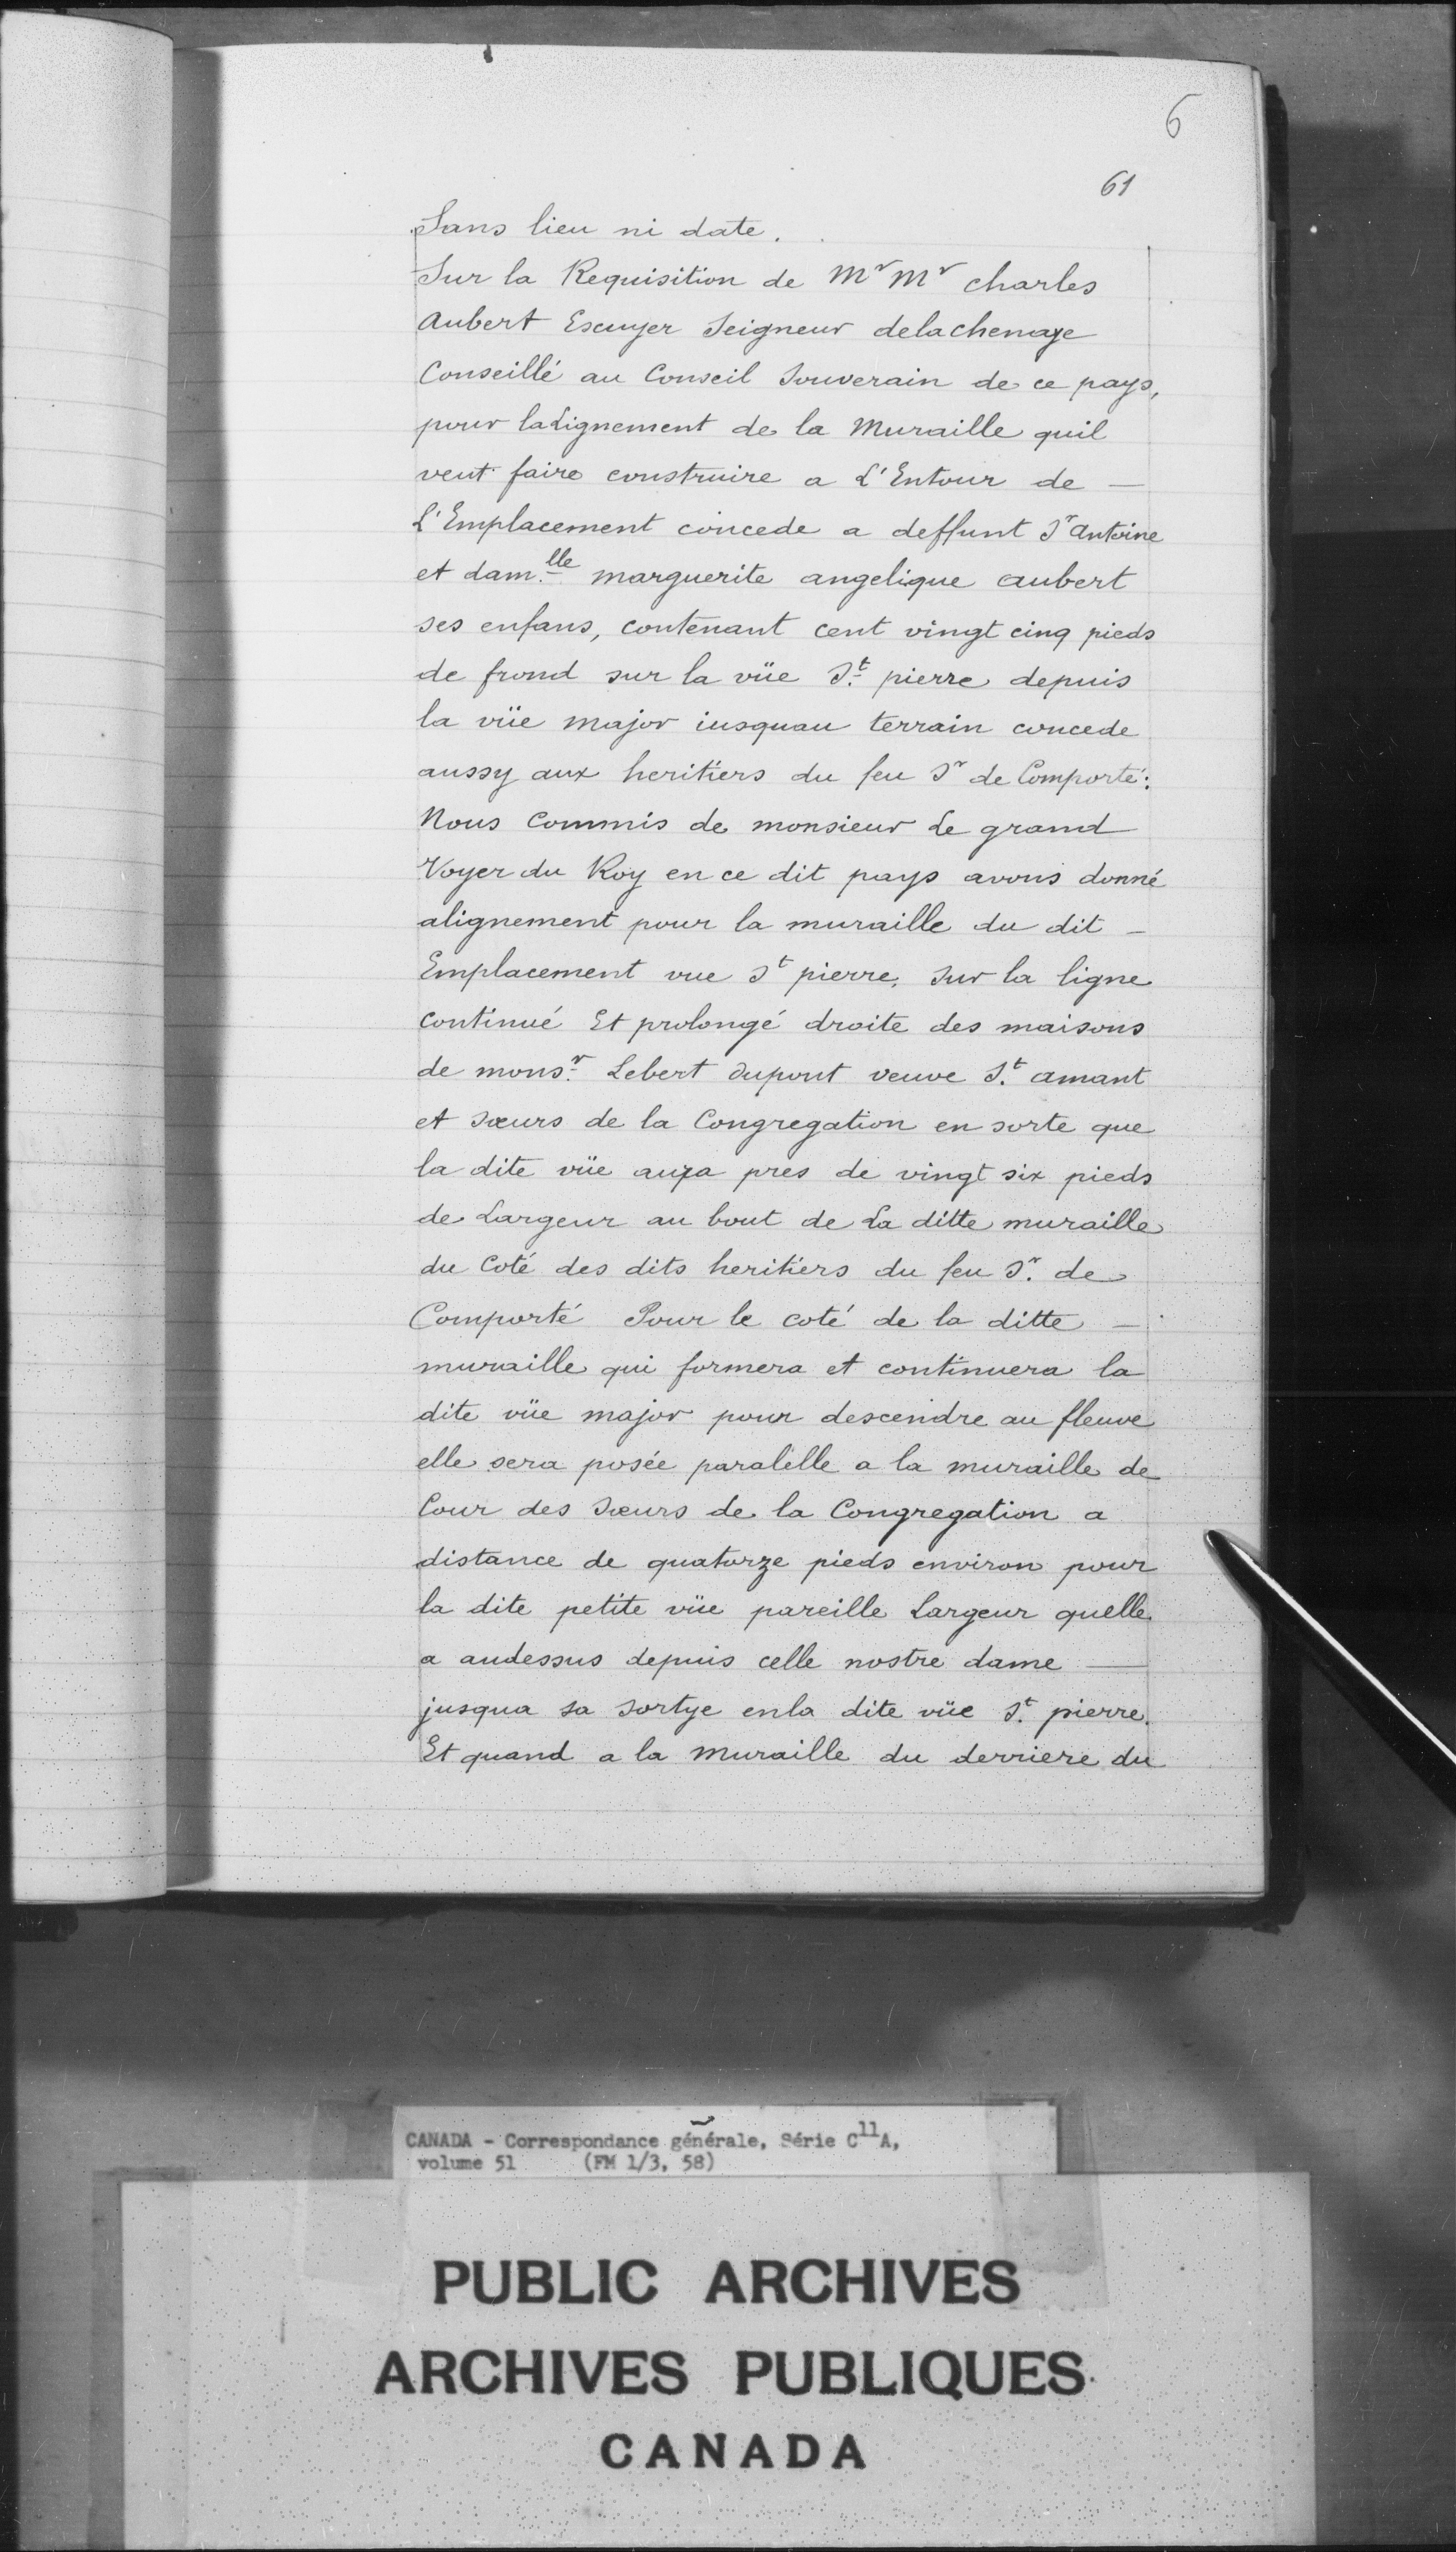 6
61
Sans lieu ni date.
Sur la Requisition de Mr Mr charles
Aubert Escuyer Seigneur delachenaye
Conseillé au Conseil Souverain de ce pays,
pour laLignement de la Muraille quil
veut faire construire a L'Entour de —
L'Emplacement concede a deffunt Sr Antoine
et dam.lle marguerite angelique aubert
ses enfans, contenant cent vingt cinq pieds
de frond sur la rüe St. pierre depuis
la rüe major iusquau terrain concede
aussy aux heritiers du feu Sr de Comporté:
Nous Commis de monsieur Le grand
Voyer du Roy en ce dit pays avons donné
alignement pour la muraille du dit —
Emplacement rue St pierre, Sur la ligne
continué Et prolongé droite des maisons
de monsr. Lebert dupont veuve St. amant
et Sœurs de la Congregation en sorte que
la dite rüe aura pres de vingt six pieds
de Largeur au bout de La ditte muraille
du Coté des dits heritiers du feu Sr. de
Comporté Pour le coté de la ditte —
muraille qui formera et continuera la
dite rüe major pour descendre au fleuve
elle sera posée paralelle a la muraille de
Cour des Sœurs de la Congregation a
distance de quatorze pieds environ pour
la dite petite rüe pareille Largeur quelle
a audessus depuis celle nostre dame —
jusqua sa Sortye enla dite rüe St. pierre.
Et quand a la Muraille du derriere du
CANADA - Correspondance générale, Série C11A,
volume 51 (FM 1/3, 58)
PUBLIC ARCHIVES
ARCHIVES PUBLIQUES
CANADA